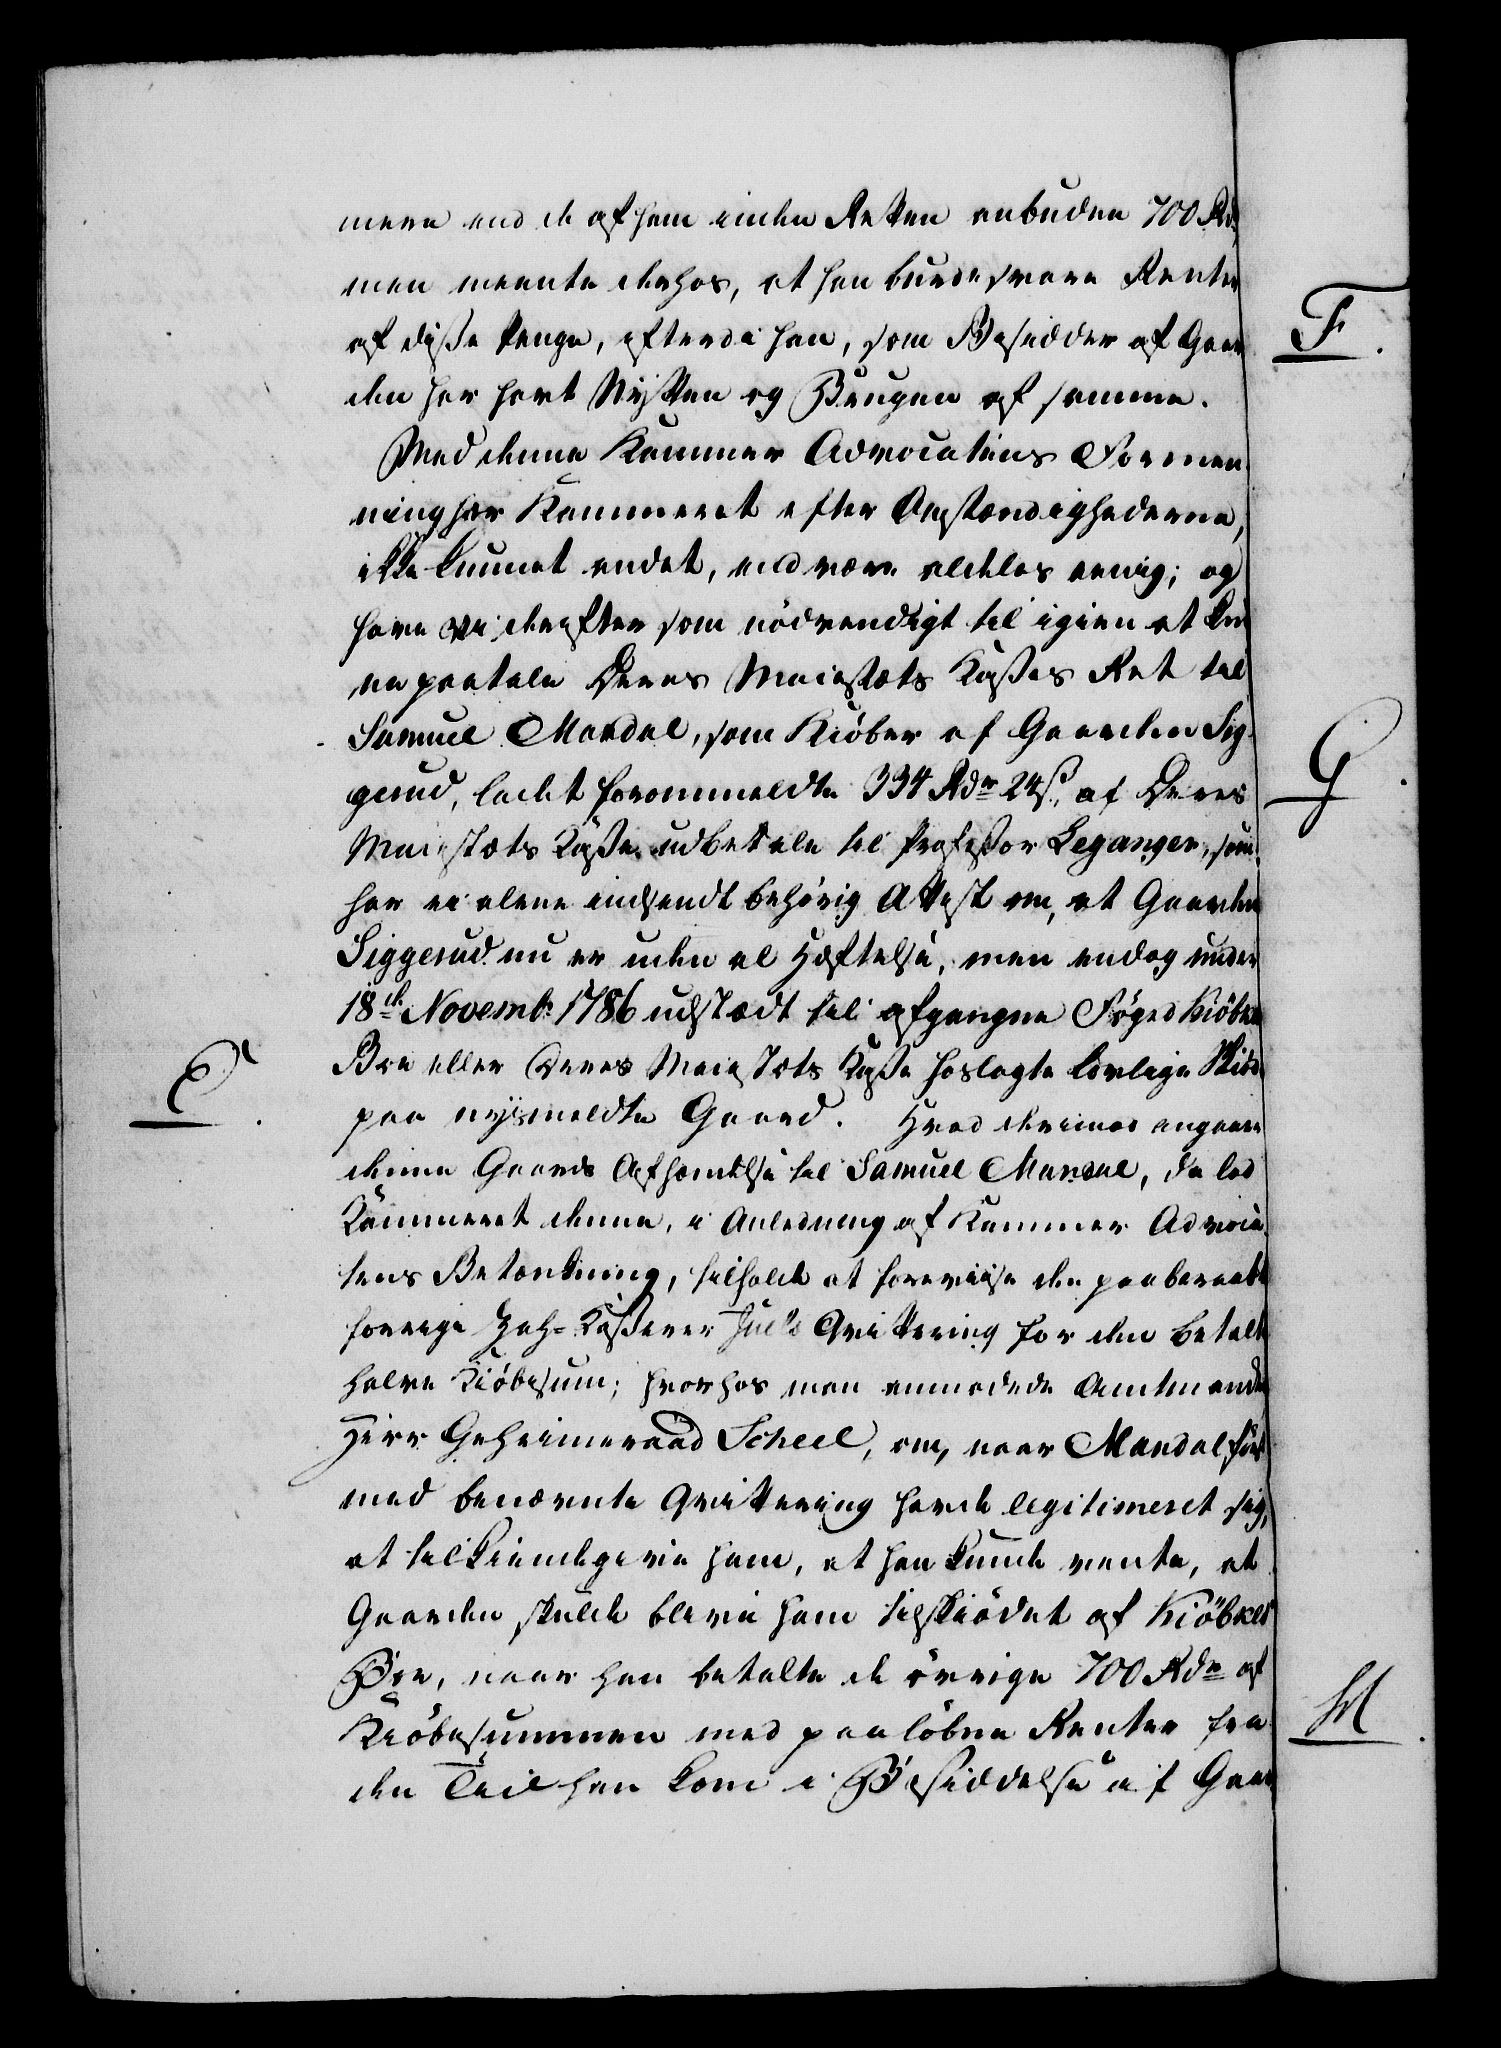 mere end de af ham inden Retten anbudne 700 Rdr,
men meente derhos, at han burde svare Renter
af disse Penge, efterdi han, som Besidder af Gaar
den har havt Nytten og Brugen af samme.
Med denne Kammer Advocatens Formee
ning har Kammeret efter Omstændighederne,
ikke kunnet andet, end være aldeles eenig; og
have vi derefter som nödvendigt til igien at kun
ne paatale Deres Maiestæts Kasses Ret til
Samuel Mandal, som Kiöber af Gaarden Sig
gerud, ladet forommeldte 334 Rdr 24 ß, af Deres
Maiestæts Kasse udbetale til Professor Leganger, som
har ei alene indsendt behörig Attest om, at Gaarden
Siggerud nu er uden al Hæftelse, men endog under
18de Novembr 1786 udstædt til afgangne Foged Kiöbke
Boe eller Deres Maiestæts Kasse hoslagte lovlige Skiöde
E.
paa nysmeldte Gaard. Hvad derimod angaaer
denne Gaards Afhændelse til Samuel Mandal, da lod
Kammeret denne, i Anledning af Kammer Advoca
tens Betænkning, tilholde at foreviise den paaberaabte
forrige Zahl-Kasserer Juels Qvittering for den betalte
halve Kiöbesum; hvorhos man anmodede Amtmanden
Herr Geheimeraad Scheel, om, naar Mandal först
med benævnte Qvittering havde legitimeret sig,
at tilkiendegive ham, at han kunde vente, at
Gaarden skulde blive ham tilskiödet af Kiöbkes
Boe, naar han betalte de övrige 700 Rdr af
Kiöbesummen med paalöbne Renter fra
den Tiid han kom i Besiddelse af Gaar
F.
G.
H.